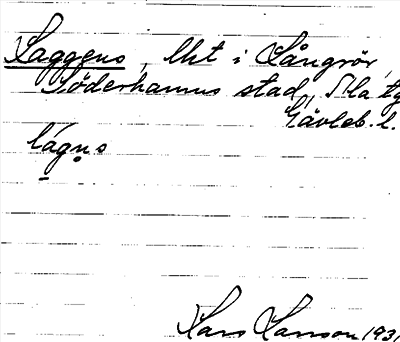 Laggens, lht i Långrör,
Söderhamns stad, Sla tg
Gävleb. l.
lágn̥s
Lars Larsson 1931